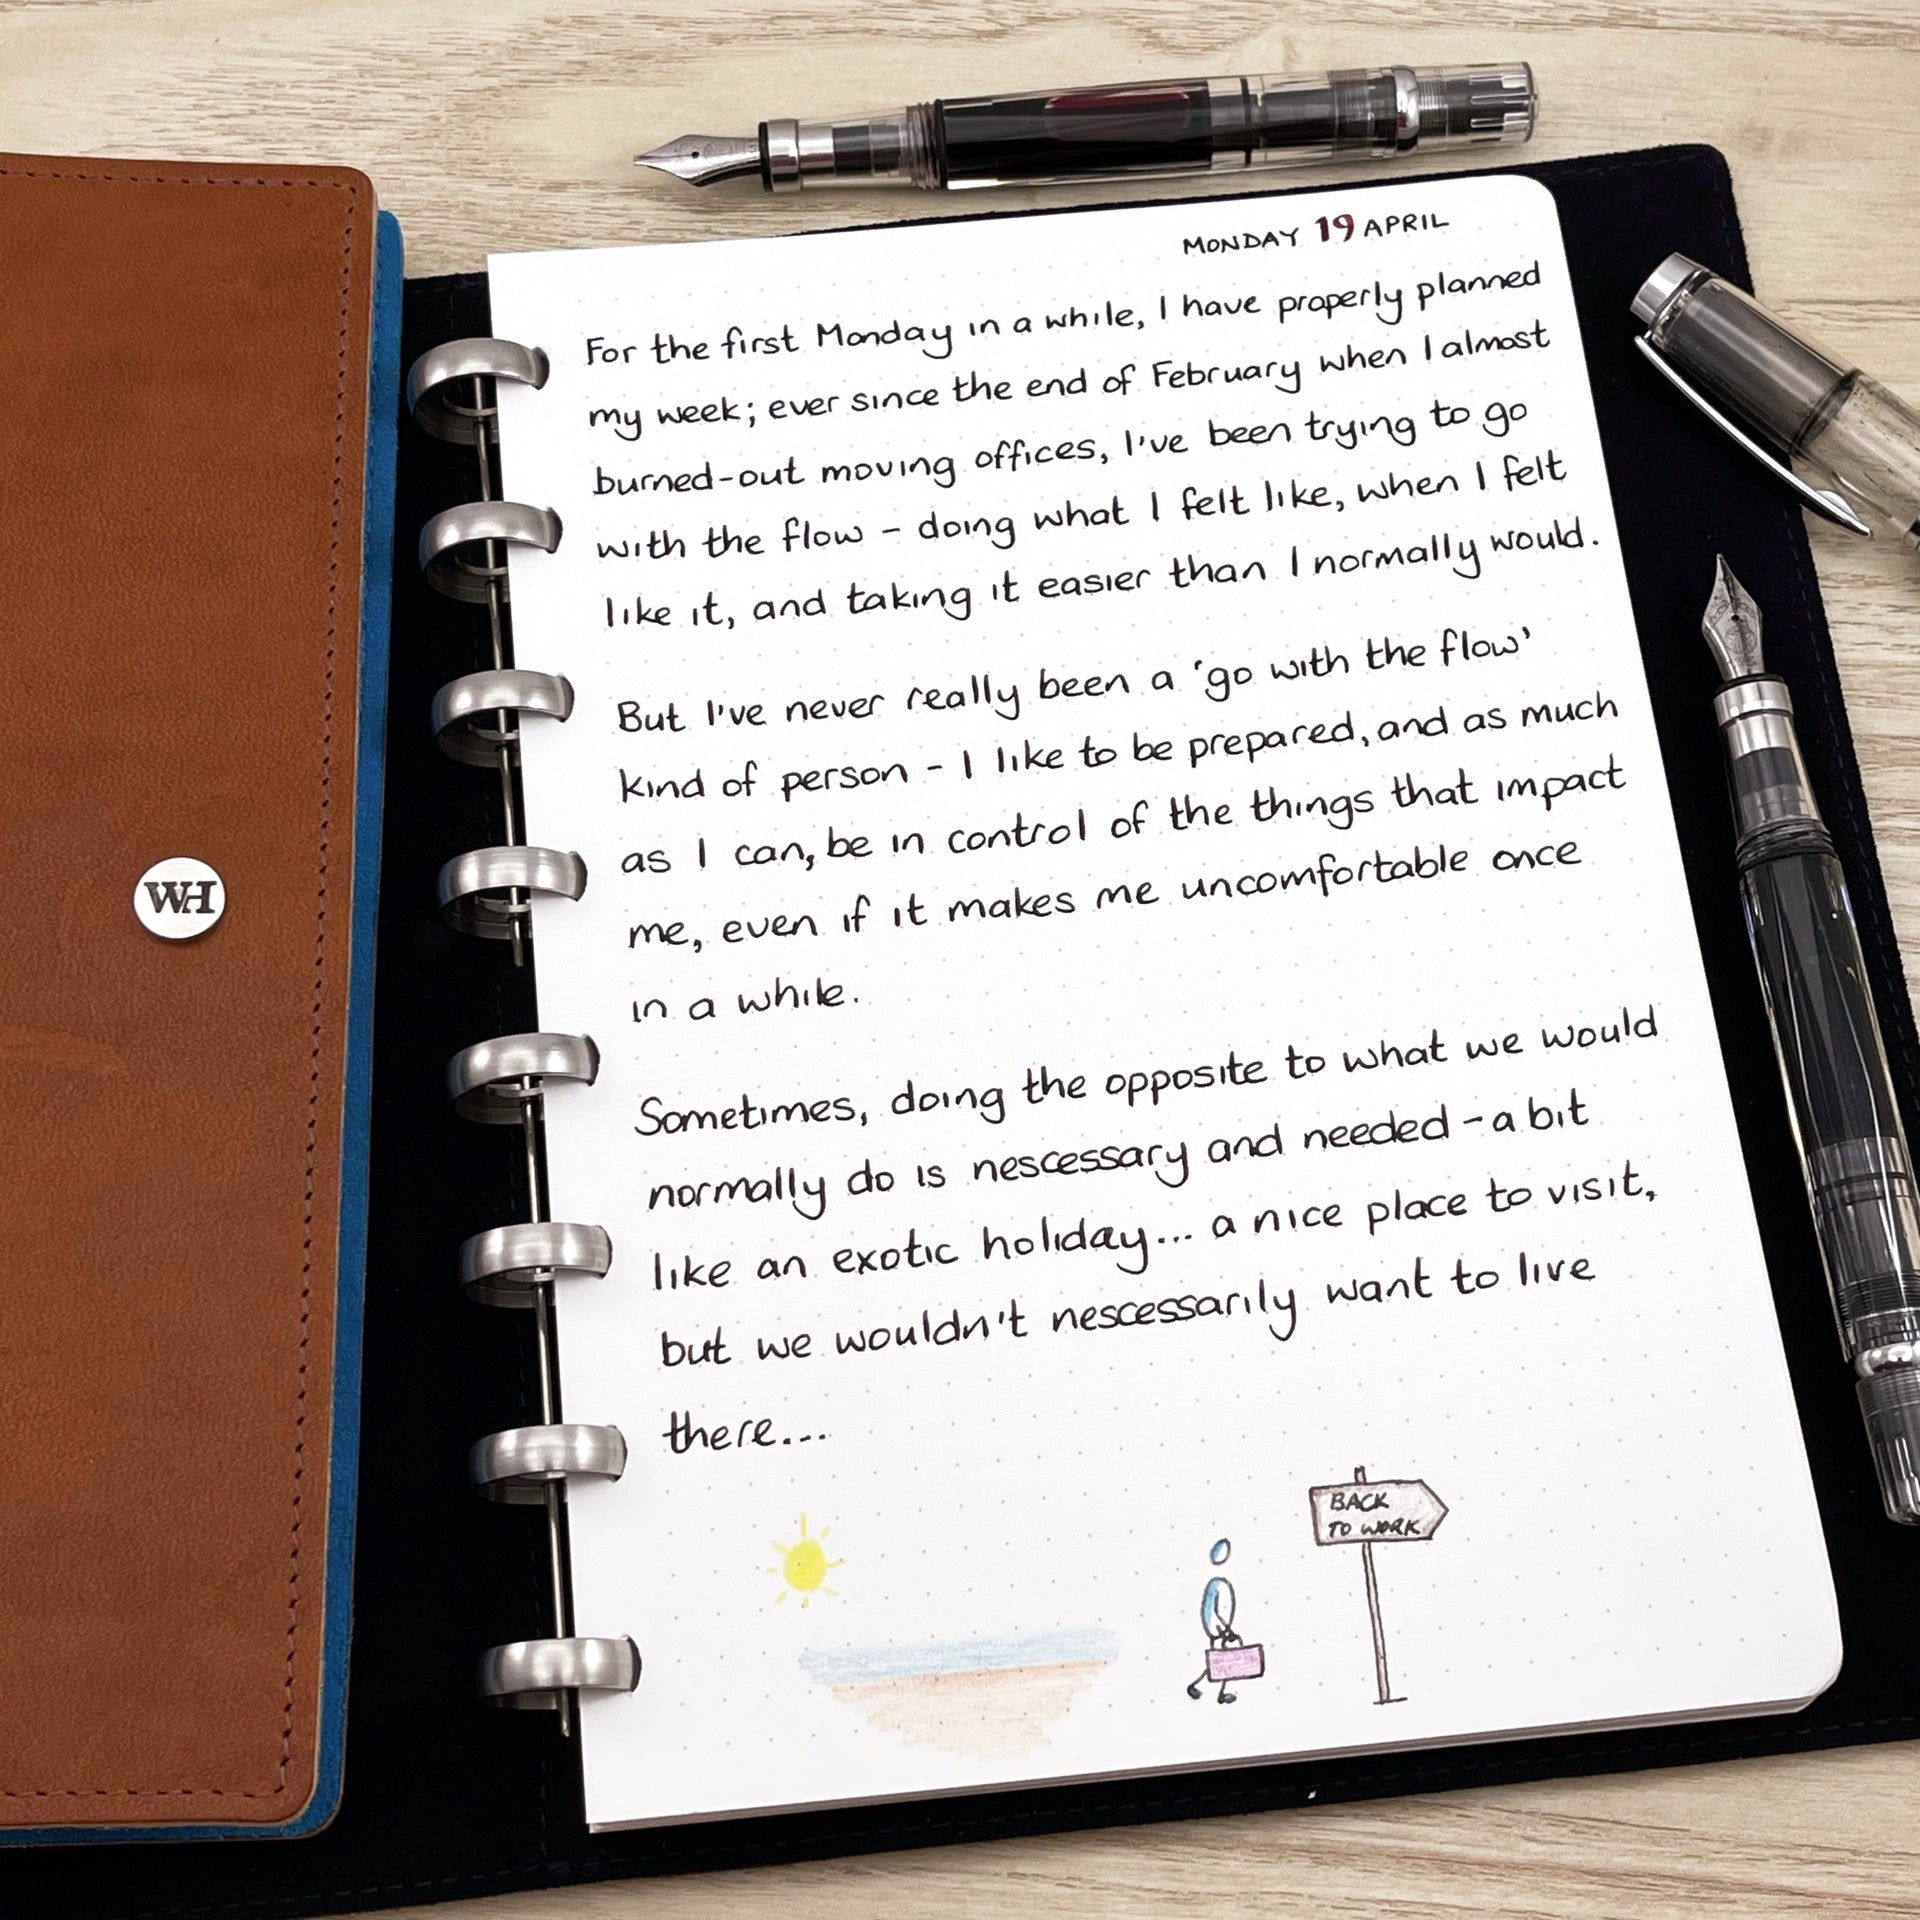 MONDAY 19 APRIL
For the first Monday in a while, I have properly planned
my week; ever since the end of February when I almost
burned-out moving offices, I've been trying to go
with the flow - doing what I felt like, when I felt
like it, and taking it easier than I normally would.
But I've never really been a 'go with the flow'
kind of person - I like to be prepared, and as much
as I can, be in control of the things that impact
me, even if it makes me uncomfortable once
in a while.
Sometimes, doing the opposite to what we would
normally do is nescessary and needed - a bit
like an exotic holiday... a nice place to visit,
but we wouldn't nescessarily want to live
there...
BACK
TO WORK
WH